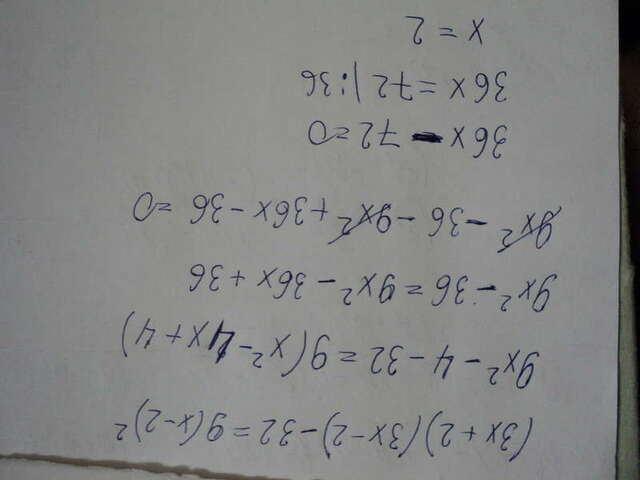 (3x + 2)(3x - 2) - 32 = 9(x - 2)²
9x² - 4 - 32 = 9(x² - 4x + 4)
9x² - 36 = 9x² - 36x + 36
9x² - 36 - 9x² + 36x - 36 = 0
36x - 72 = 0
36x = 72 |:36
x = 2